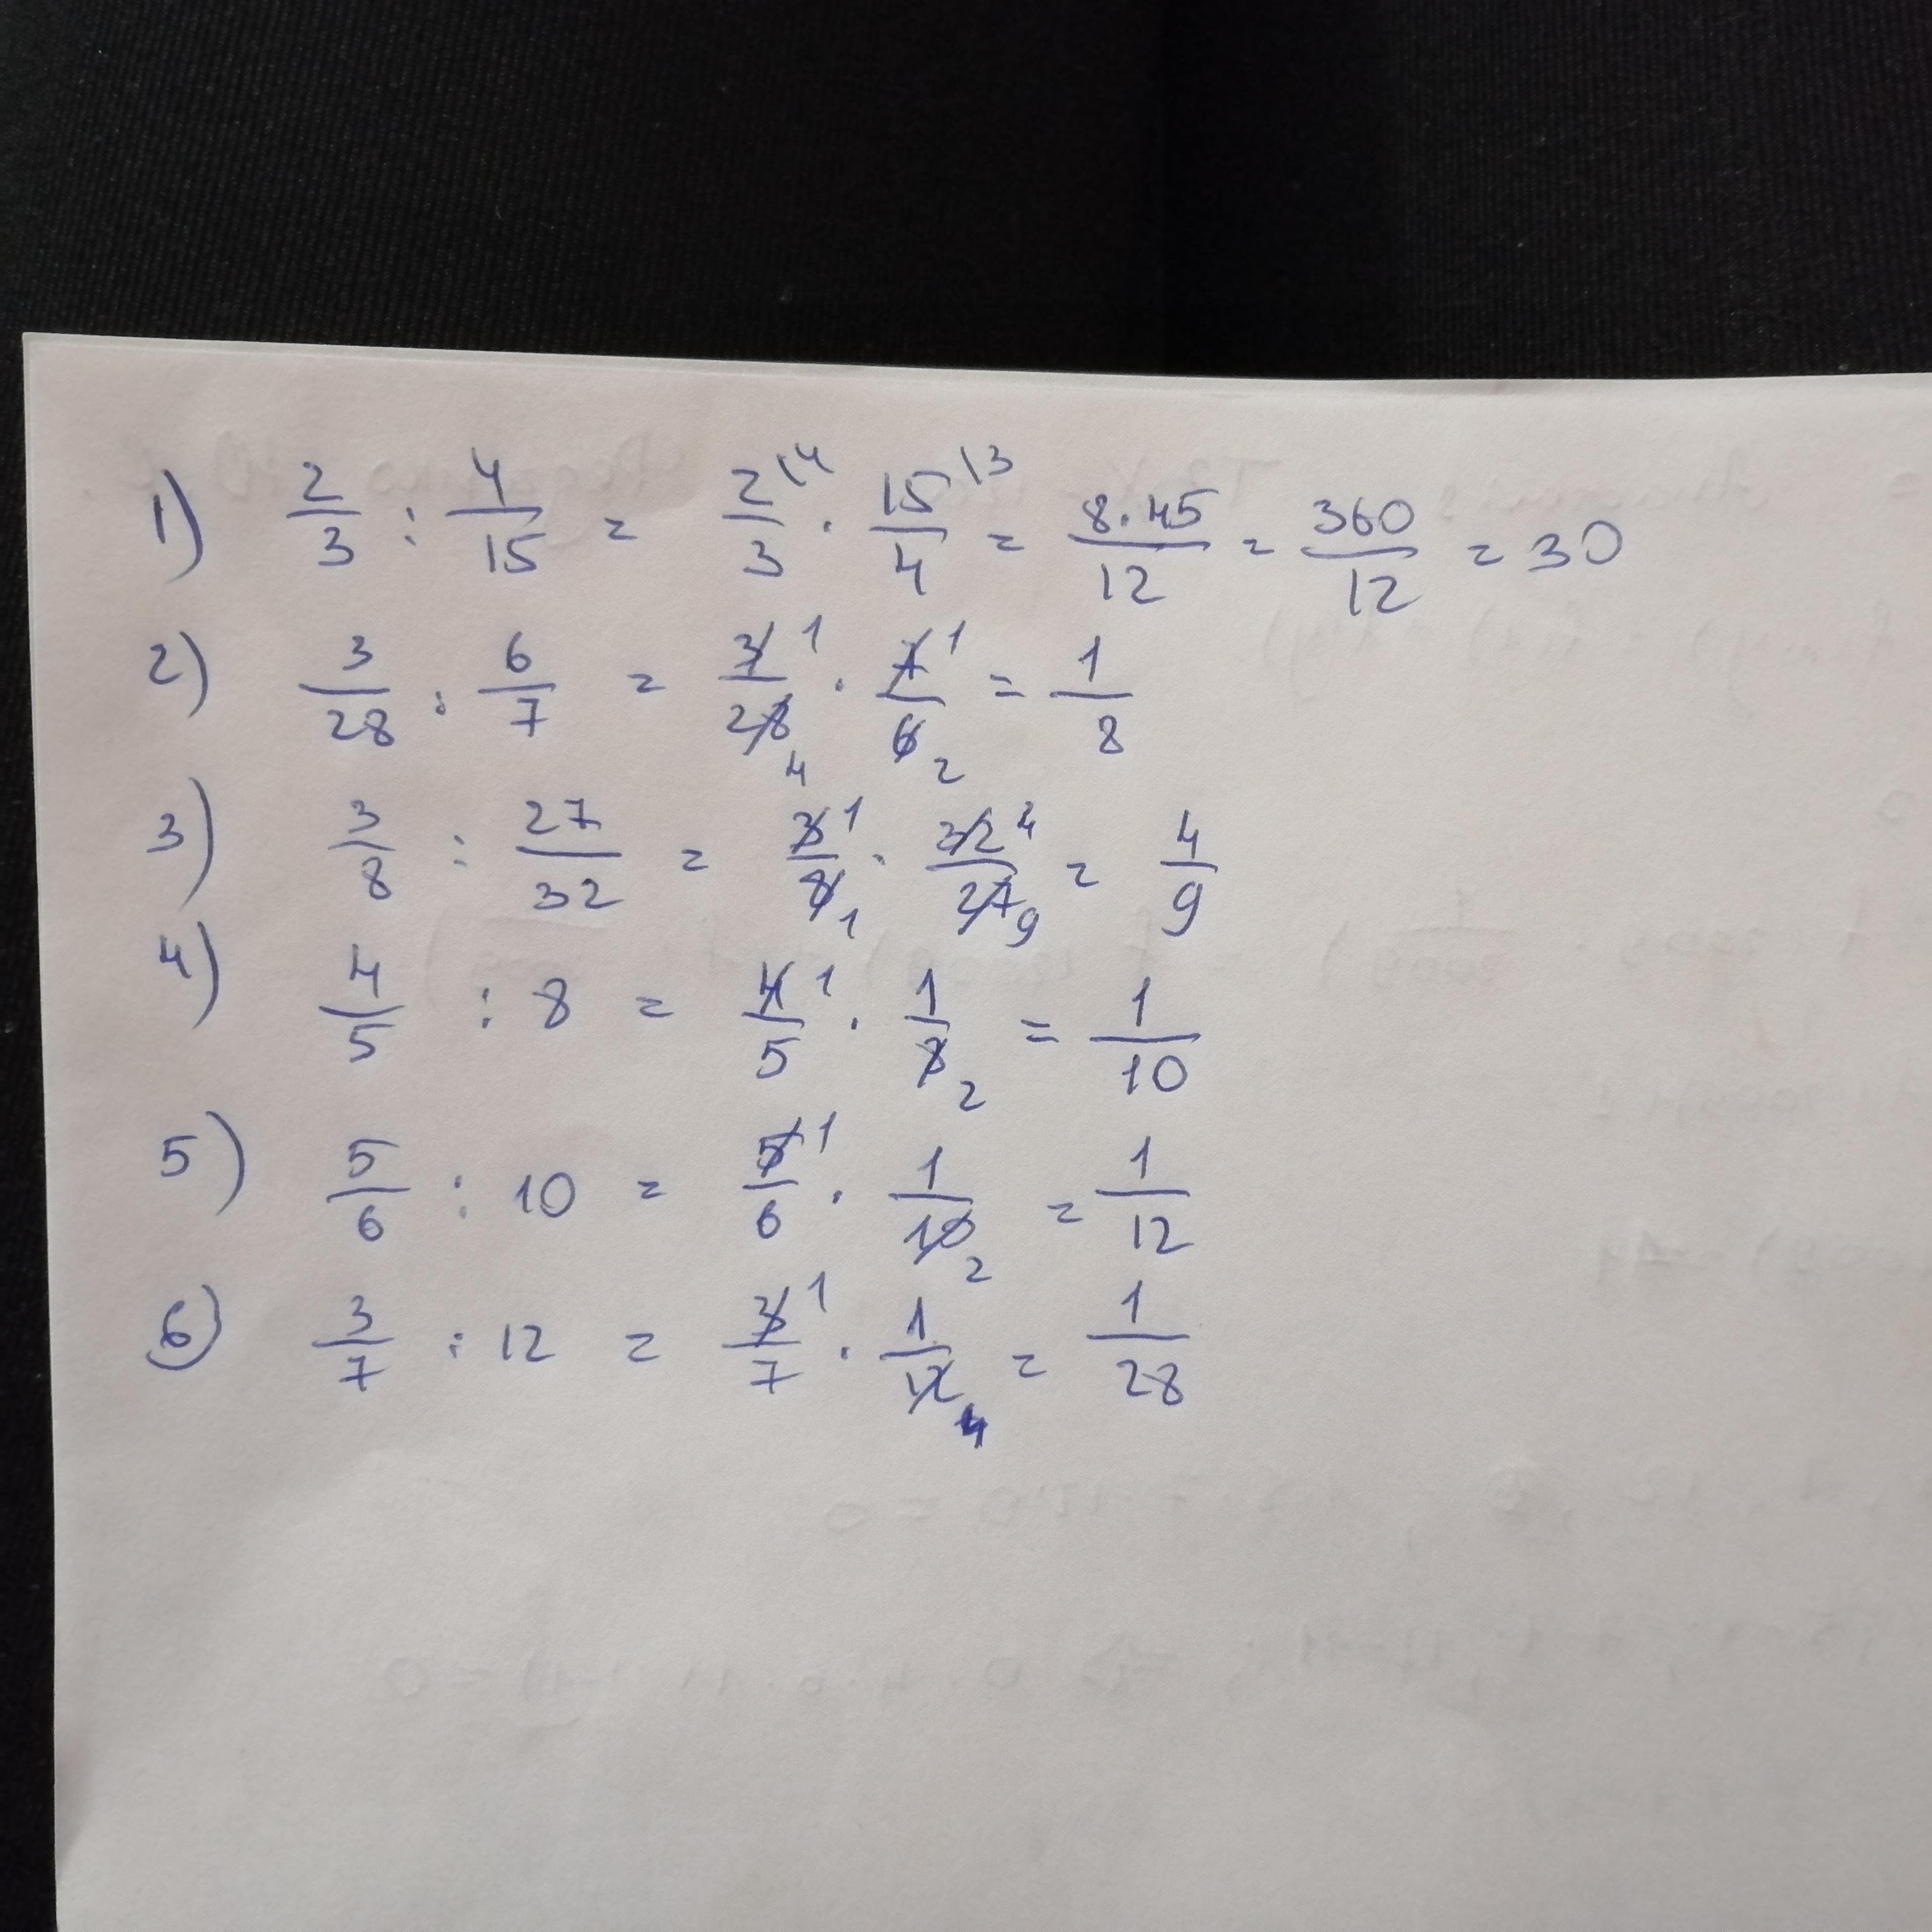 1) 2/3 : 4/15 = 2\4/3 · 15\3/4 = 8·45/12 = 360/12 = 30
2) 3/28 : 6/7 = 3 1/28 4 · 7 1/6 2 = 1/8
3) 3/8 : 27/32 = 3 1/8 1 · 32 4/27 9 = 4/9
4) 4/5 : 8 = 4 1/5 · 1/8 2 = 1/10
5) 5/6 : 10 = 5 1/6 · 1/10 2 = 1/12
6) 3/7 : 12 = 3 1/7 · 1/12 4 = 1/28